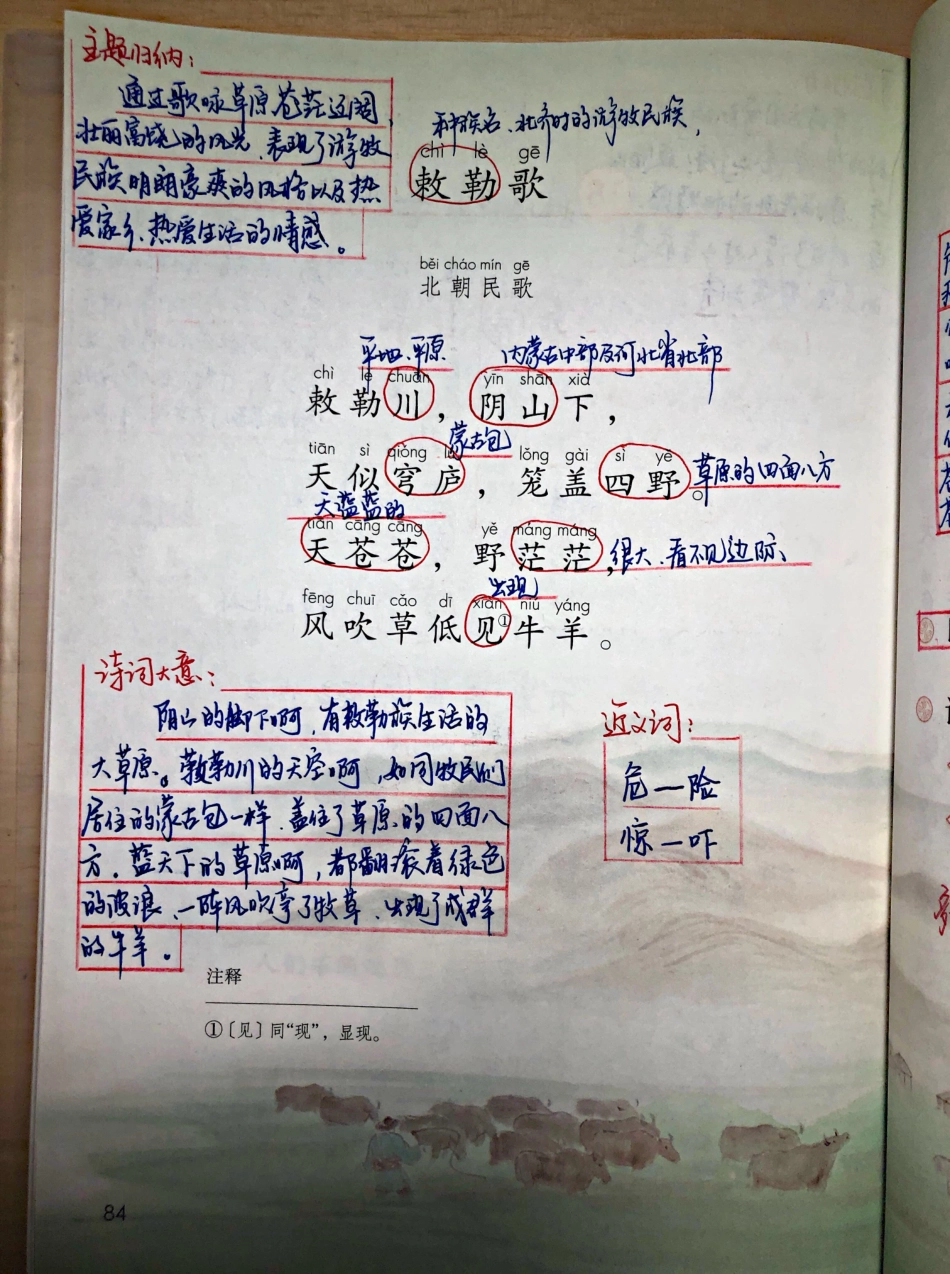 主题归纳:
通过歌咏草原苍茫辽阔、
壮丽富饶的风光、表现了游牧
民族明朗豪爽的风格以及热
爱家乡、热爱生活的情感。
种族名、北齐时的游牧民族,
chì lè gē
敕勒歌
běi cháo mín gē
北朝民歌
平地、平原
内蒙古中部及河北省北部
chì lè chuān yīn shān xià
敕勒川,阴山下,
蒙古包
tiān sì qióng lú lǒng gài sì yě
天似穹庐,笼盖四野。
草原的四面八方
天蓝蓝的
tiān cāng cāng yě máng máng
天苍苍,野茫茫,
很大、看不见边际、
出现
fēng chuī cǎo dī xiàn niú yáng
风吹草低见①牛羊。
诗词大意:
阴山的脚下啊,有敕勒族生活的
大草原。敕勒川的天空啊,如同牧民们
居住的蒙古包一样、盖住了草原的四面八
方。蓝天下的草原啊,都翻滚着绿色
的波浪、一阵风吹弯了牧草、出现了成群
的牛羊。
近义词:
危—险
惊—吓
注释
①〔见〕同“现”,显现。
84